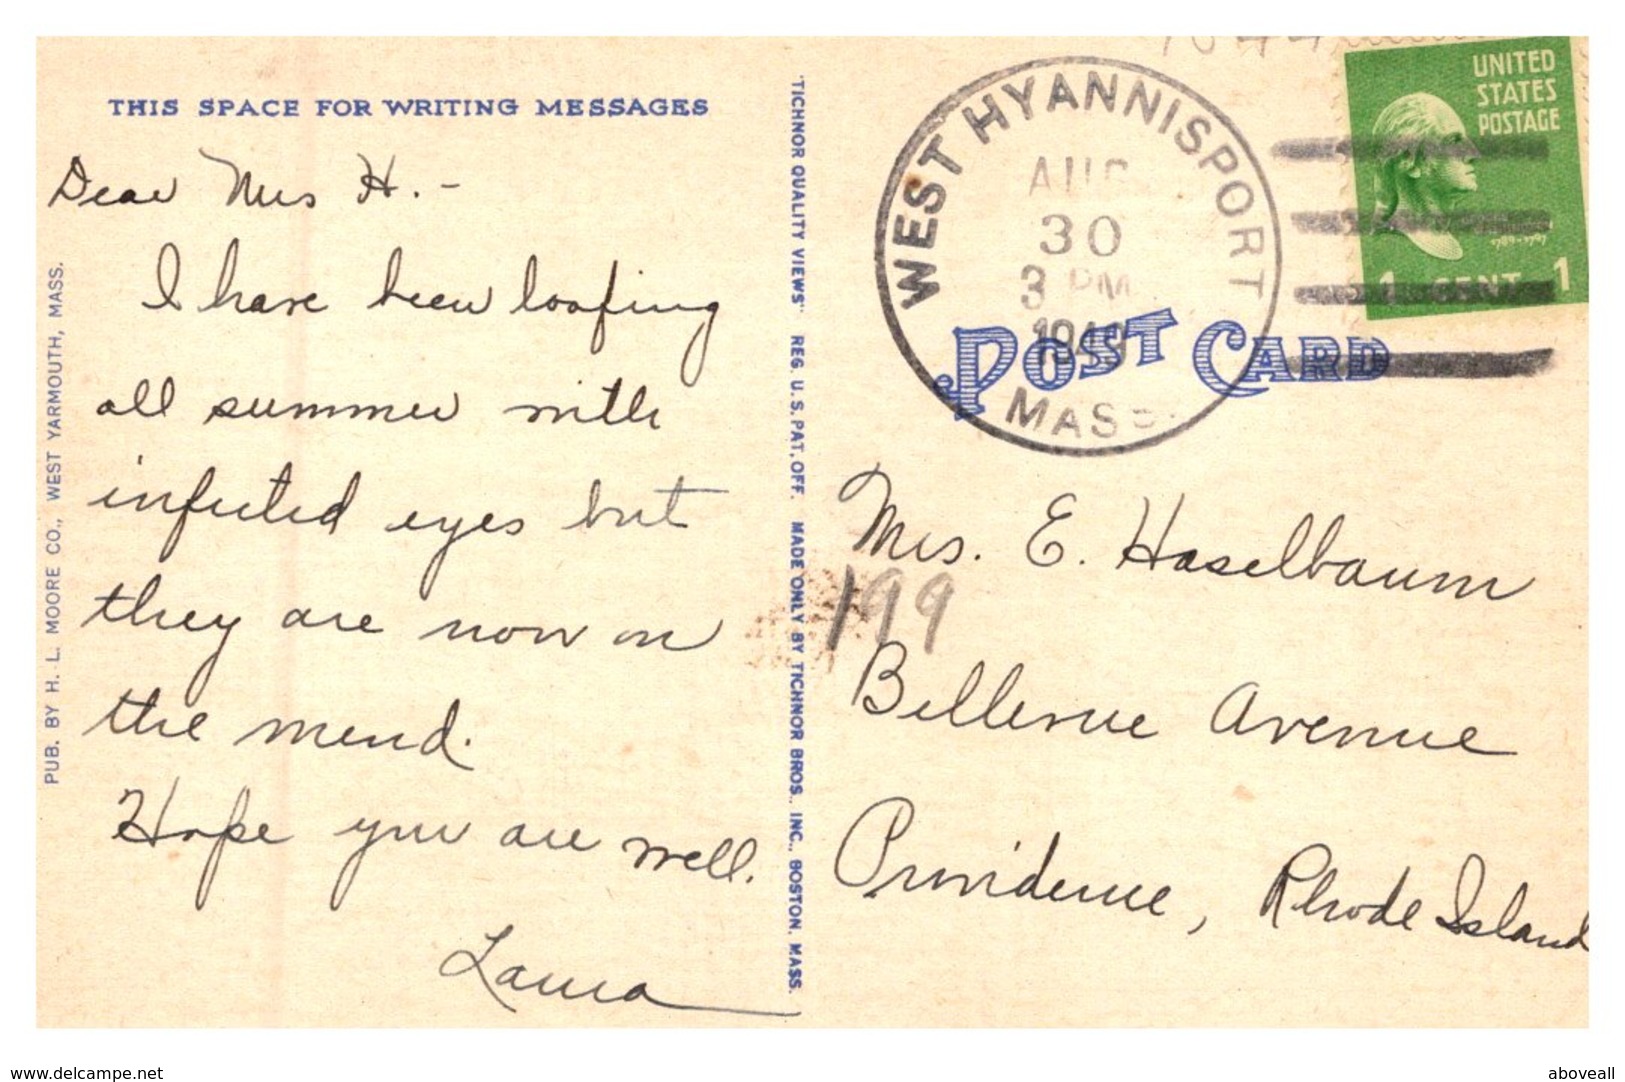 THIS SPACE FOR WRITING MESSAGES
Dear Mrs H. -
I have been loafing
all summer with
infected eyes but
they are now on
the mend.
Hope you are well.
Laura
PUB. BY H. L. MOORE CO., WEST YARMOUTH, MASS.
"TICHNOR QUALITY VIEWS" REG. U. S. PAT. OFF. MADE ONLY BY TICHNOR BROS., INC., BOSTON, MASS.
WEST HYANNISPORT
AUG
30
3 PM
MASS.
UNITED
STATES
POSTAGE
1 CENT 1
POST CARD
Mrs. E. Haselbaum
199
Bellevue Avenue
Providence, Rhode Island
www.delcampe.net
aboveall